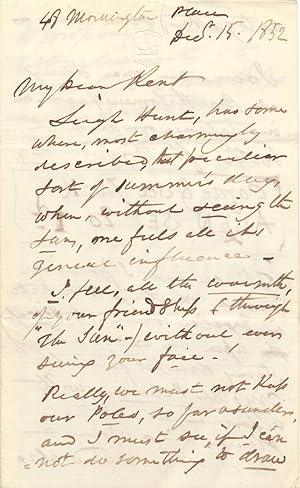 48 Mornington Place
Decr. 15. 1852
My dear Kent
Leigh Hunt, has some
where, most charmingly
described, that peculiar
sort of summer's day,
when, without seeing the
sun, one feels all its
genial influence—
I feel, all the warmth,
of your friendship (through
"The Sun"—) without ever
seeing your face—!
Really, we must not keep
our Poles, so far asunder,
and I must see, if I can
not do something to draw